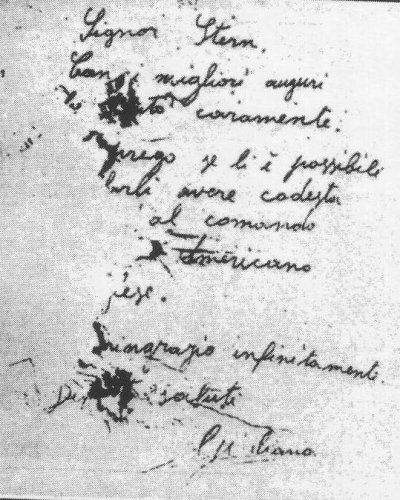 Signor Stern,
Con i migliori auguri
caramente.
prego se li è possibili
farli avere codesta
al comando
Americano
Ringrazio infinitamente
saluti